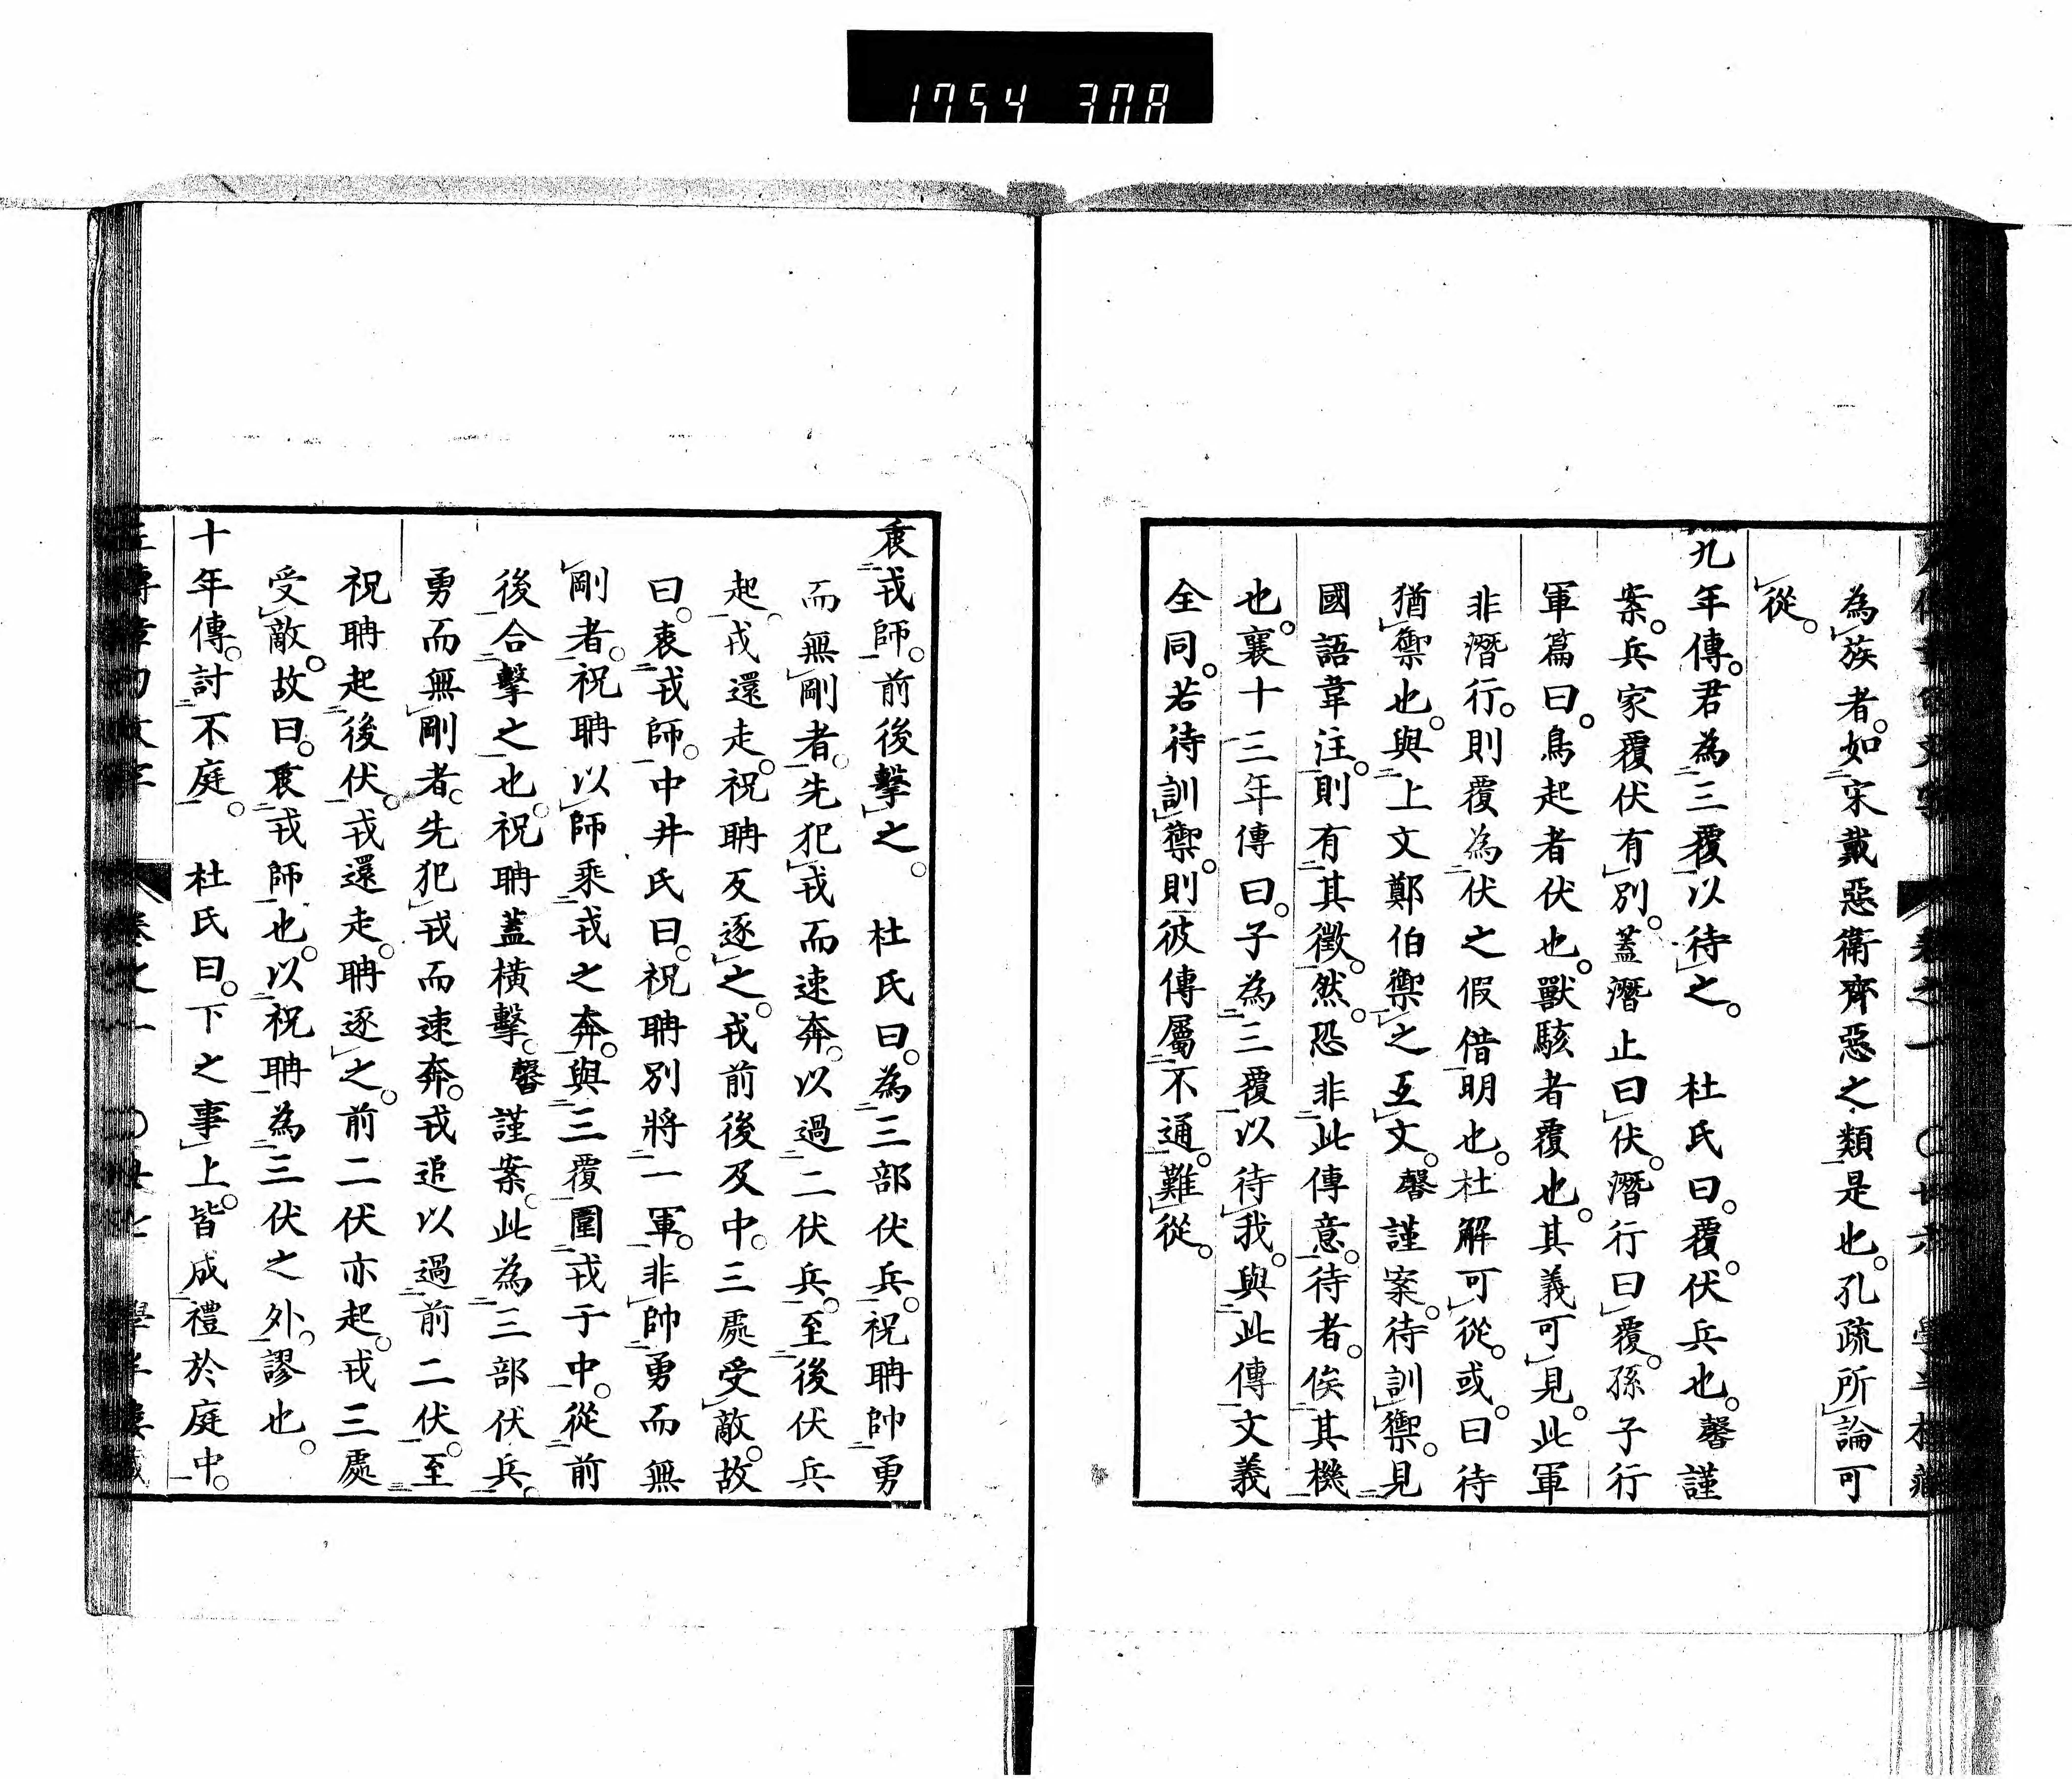 1754 308
為族者。如宋戴惡衛齊惡之類是也。孔疏所論可
從。
九年傳。君為三覆以待之。 杜氏曰。覆。伏兵也。馨謹
案。兵家覆伏有別。蓋潛止曰伏。潛行曰覆。孫子行
軍篇曰。鳥起者伏也。獸駭者覆也。其義可見。此軍
非潛行。則覆為伏之假借明也。杜解可從。或曰待
猶禦也。與上文鄭伯禦之互文。馨謹案。待訓禦。見
國語韋注。則有其徵。然。恐非此傳意。待者。俟其機
也。襄十三年傳曰。子為三覆以待我。與此傳文義
全同。若待訓禦。則彼傳屬不通。難從。
衷戎師。前後擊之。 杜氏曰。為三部伏兵。祝聃帥勇
而無剛者。先犯戎而速奔。以過二伏兵。至後伏兵
起。戎還走。祝聃反逐之。戎前後及中。三處受敵。故
曰。衷戎師。中井氏曰。祝聃別將一軍。非帥勇而無
剛者。祝聃以師乘戎之奔。與三覆圍戎于中。從前
後合擊之也。祝聃蓋橫擊。馨謹案。此為三部伏兵。
勇而無剛者。先犯戎而速奔。戎追以過前二伏。至
祝聃起後伏。戎還走。聃逐之。前二伏亦起。戎三處
受敵。故曰。衷戎師也。以祝聃為三伏之外。謬也。
十年傳。討不庭。 杜氏曰。下之事上。皆成禮於庭中。
卷之一